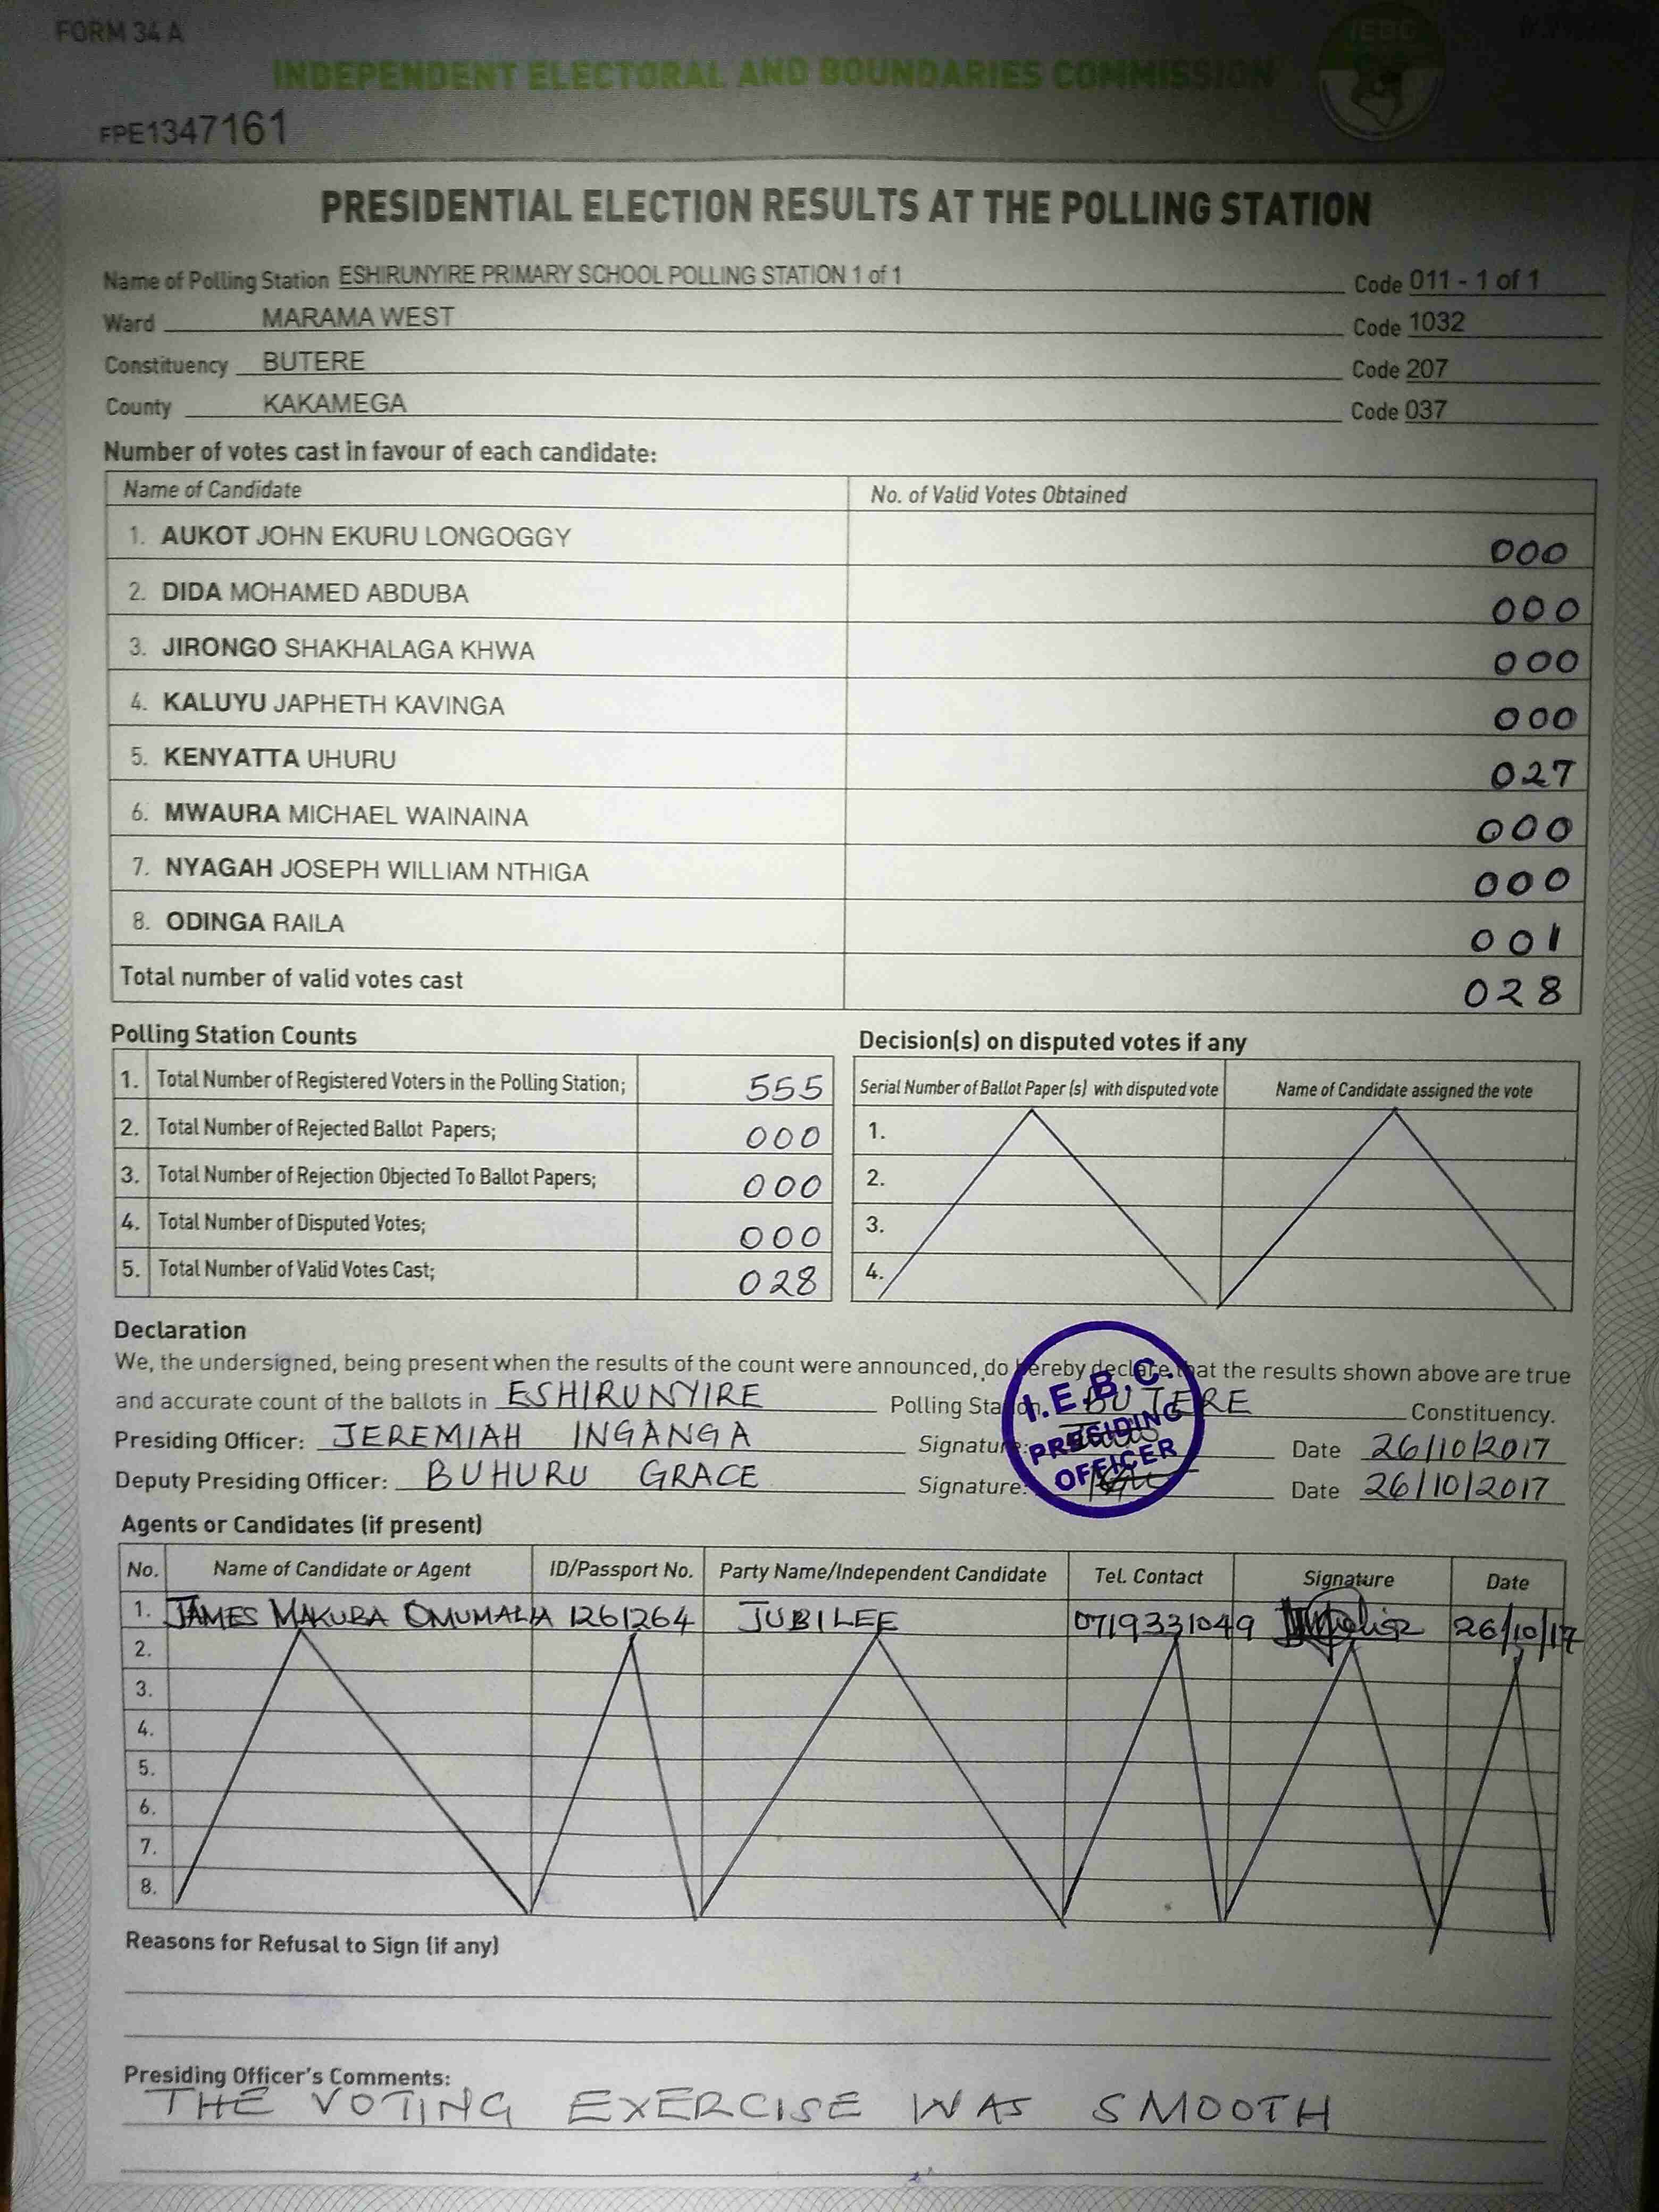 FORM 34 A
IEBC
INDEPENDENT ELECTORAL AND BOUNDARIES COMMISSION
FPE1347161
PRESIDENTIAL ELECTION RESULTS AT THE POLLING STATION
Name of Polling Station ESHIRUNYIRE PRIMARY SCHOOL POLLING STATION 1 of 1 Code 011 - 1 of 1
Ward MARAMA WEST Code 1032
Constituency BUTERE Code 207
County KAKAMEGA Code 037
Number of votes cast in favour of each candidate:
Name of Candidate No. of Valid Votes Obtained
1. AUKOT JOHN EKURU LONGOGGY 000
2. DIDA MOHAMED ABDUBA 000
3. JIRONGO SHAKHALAGA KHWA 000
4. KALUYU JAPHETH KAVINGA 000
5. KENYATTA UHURU 027
6. MWAURA MICHAEL WAINAINA 000
7. NYAGAH JOSEPH WILLIAM NTHIGA 000
8. ODINGA RAILA 001
Total number of valid votes cast 028
Polling Station Counts
1. Total Number of Registered Voters in the Polling Station; 555
2. Total Number of Rejected Ballot Papers; 000
3. Total Number of Rejection Objected To Ballot Papers; 000
4. Total Number of Disputed Votes; 000
5. Total Number of Valid Votes Cast; 028
Decision(s) on disputed votes if any
Serial Number of Ballot Paper (s) with disputed vote Name of Candidate assigned the vote
1.
2.
3.
4.
Declaration
We, the undersigned, being present when the results of the count were announced, do hereby declare that the results shown above are true
and accurate count of the ballots in ESHIRUNYIRE Polling Station, BUTERE Constituency.
Presiding Officer: JEREMIAH INGANGA Signature: Date 26/10/2017
Deputy Presiding Officer: BUHURU GRACE Signature: Date 26/10/2017
I.E.B.C.
PRESIDING
OFFICER
Agents or Candidates (if present)
No. Name of Candidate or Agent ID/Passport No. Party Name/Independent Candidate Tel. Contact Signature Date
1. JAMES MAKUBA OMUMALIA 1261264 JUBILEE 0719331049 26/10/17
2.
3.
4.
5.
6.
7.
8.
Reasons for Refusal to Sign (if any)
Presiding Officer's Comments:
THE VOTING EXERCISE WAS SMOOTH